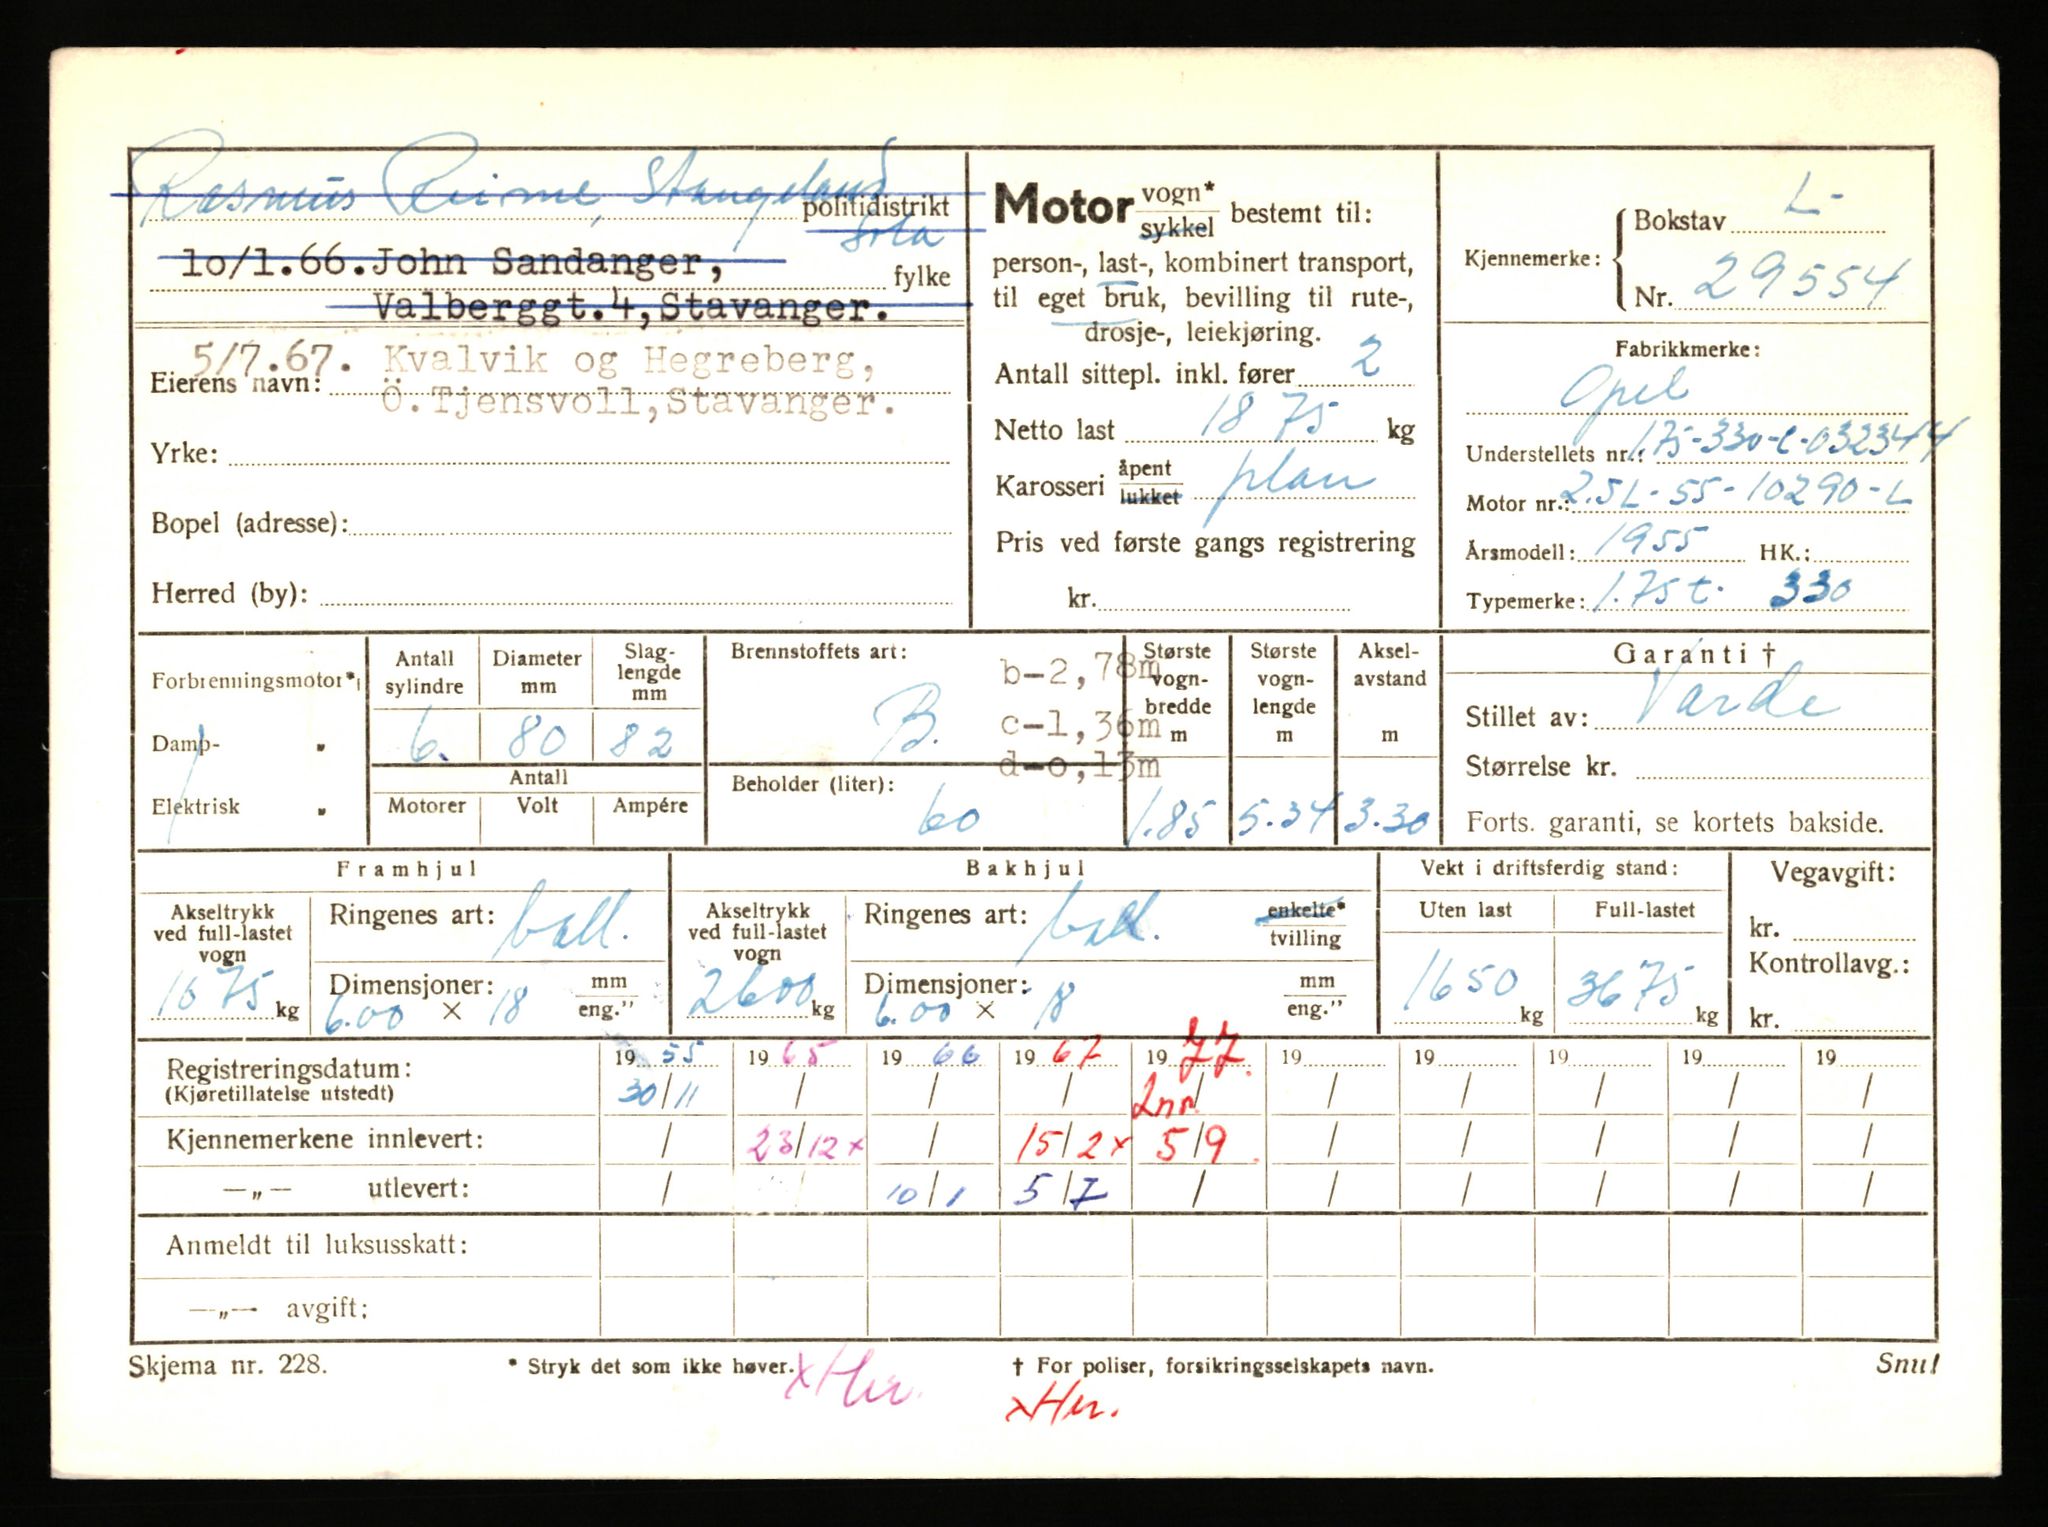 Rasmus Reime, Stangeland
politidistrikt
Sola
10/1.66. John Sandanger,
fylke
Valberggt.4, Stavanger.
5/7.67. Kvalvik og Hegreberg,
Eierens navn:
Ö.Tjensvoll, Stavanger.
Yrke:
Bopel (adresse):
Herred (by):
Motor vogn* / sykkel bestemt til:
person-, last-, kombinert transport,
til eget bruk, bevilling til rute-,
drosje-, leiekjøring.
Antall sittepl. inkl. fører 2
Netto last 1875 kg
Karosseri åpent / lukket plan
Pris ved første gangs registrering
kr.
Kjennemerke: Bokstav L-
Nr. 29554
Fabrikkmerke:
Opel
Understellets nr.: 175-330-L-032344
Motor nr.: 2.5L-55-10290-L
Årsmodell: 1955 HK.:
Typemerke: 1.75 t. 330
Forbrenningsmotor*
Damp- "
Elektrisk "
Antall sylindre 6.
Diameter mm 80
Slag-lengde mm 82
Antall
Motorer Volt Ampére
Brennstoffets art: B.
b-2,78m
c-1,36m
d-0,13m
Beholder (liter): 60
Største vogn-bredde m 1.85
Største vogn-lengde m 5.34
Aksel-avstand m 3.30
Garanti †
Stillet av: Varde
Størrelse kr.
Forts. garanti, se kortets bakside.
Framhjul
Akseltrykk ved full-lastet vogn 1075 kg
Ringenes art: ball.
Dimensjoner: 6.00 × 18 mm / eng."
Bakhjul
Akseltrykk ved full-lastet vogn 2600 kg
Ringenes art: ball. enkelte* / tvilling
Dimensjoner: 6.00 × 18 mm / eng."
Vekt i driftsferdig stand:
Uten last 1650 kg
Full-lastet 3675 kg
Vegavgift:
kr.
Kontrollavg.:
kr.
Registreringsdatum: 19 55 19 65 19 66 19 67 19 77. 19 19 19 19 19
(Kjøretillatelse utstedt) 30/11 / / / 2nr/ / / / / /
Kjennemerkene innlevert: / 23/12 x / 15/2 x 5/9. / / / / /
—„— utlevert: / / 10/1 5/7 / / / / / /
Anmeldt til luksusskatt:
—„— avgift:
Skjema nr. 228. * Stryk det som ikke høver. † For poliser, forsikringsselskapets navn. Snu!
x Hv.
x Hv.